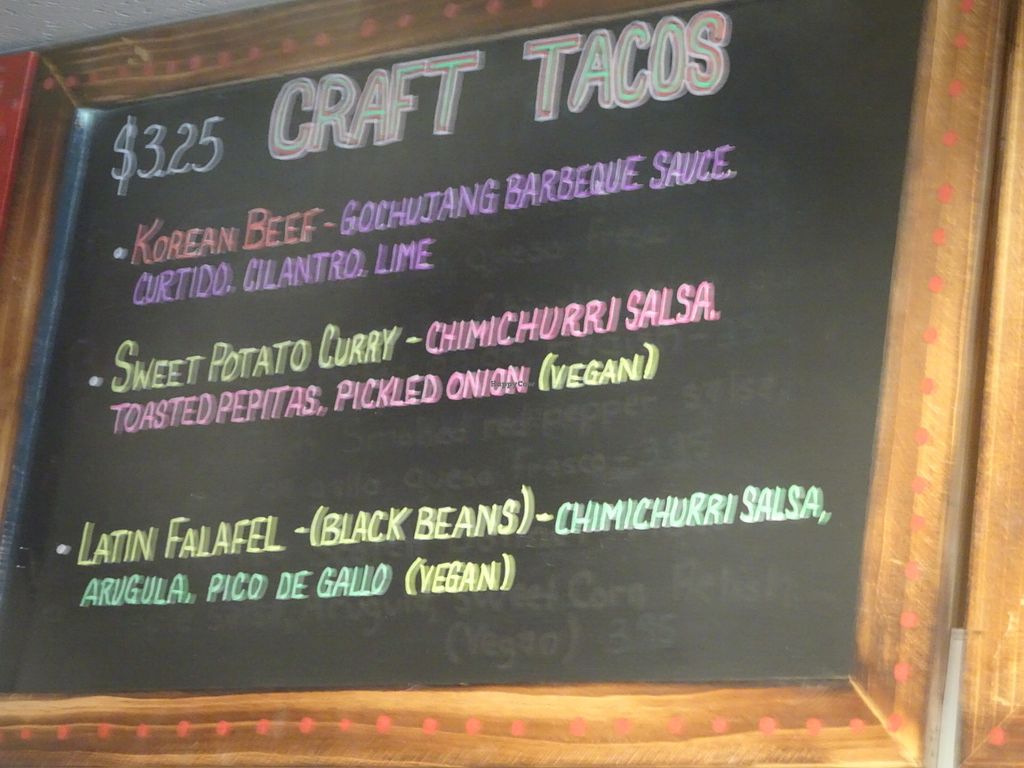 CRAFT TACOS
$3.25
• KOREAN BEEF - GOCHUJANG BARBEQUE SAUCE,
CURTIDO, CILANTRO, LIME
• SWEET POTATO CURRY - CHIMICHURRI SALSA,
TOASTED PEPITAS, PICKLED ONION (VEGAN)
HappyCow
• LATIN FALAFEL - (BLACK BEANS) - CHIMICHURRI SALSA,
ARUGULA, PICO DE GALLO (VEGAN)